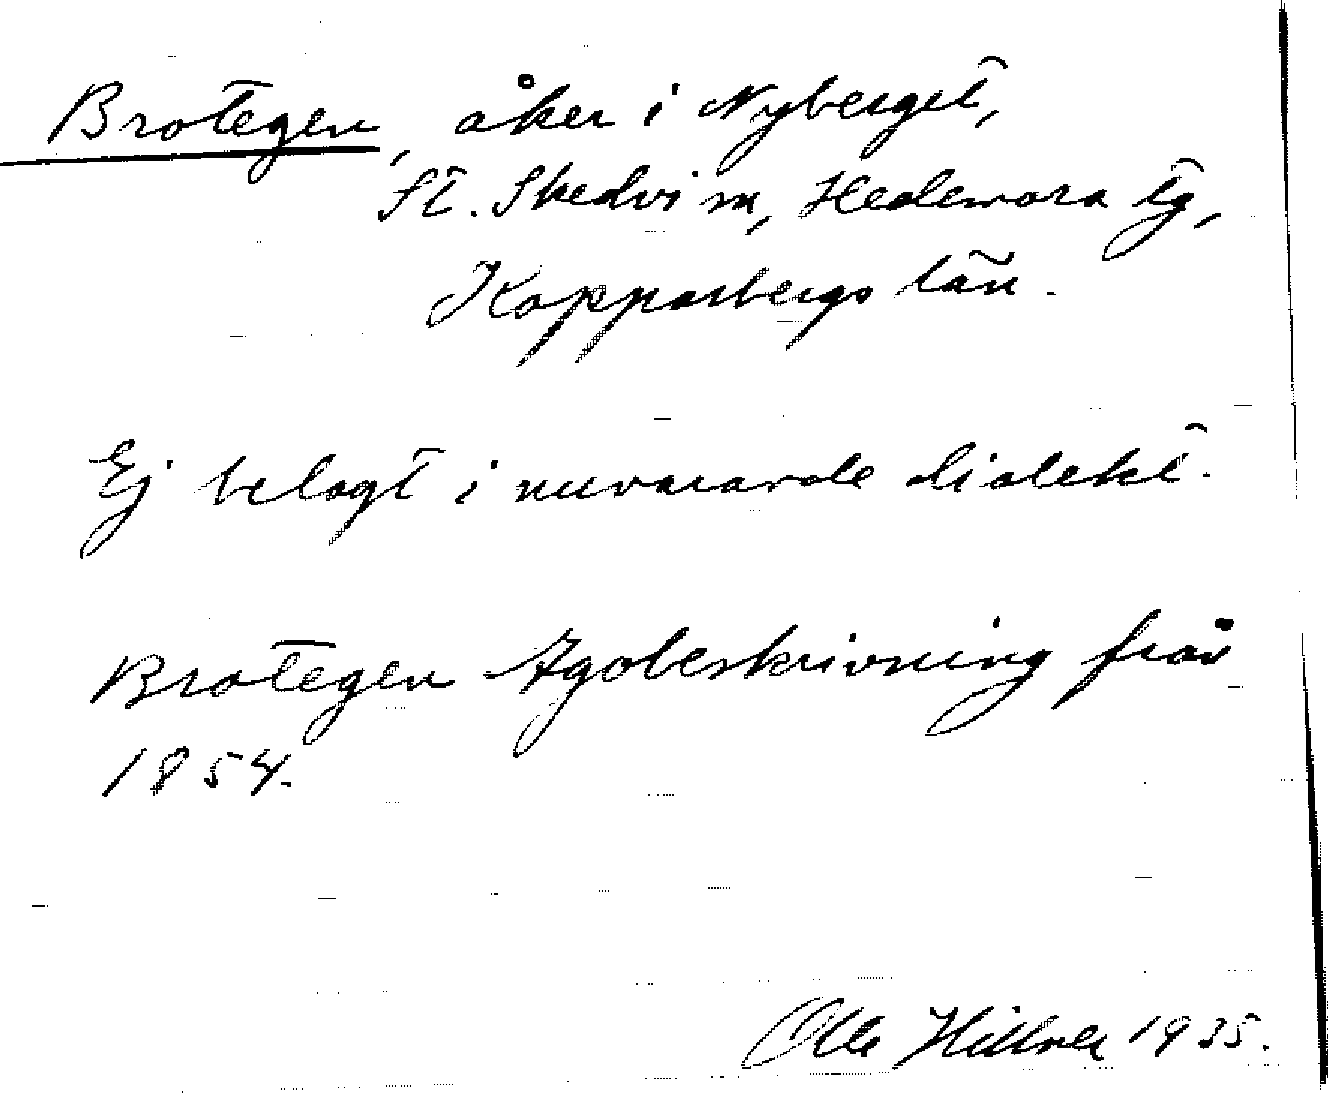 Brotegen, åker i Nyberget,
St. Skedvi sn, Hedemora tg,
Kopparbergs län.
Ej belagt i nuvarande dialekt.
Brotegen Ägobeskrivning från
1854.
Olle Hillner 1935.